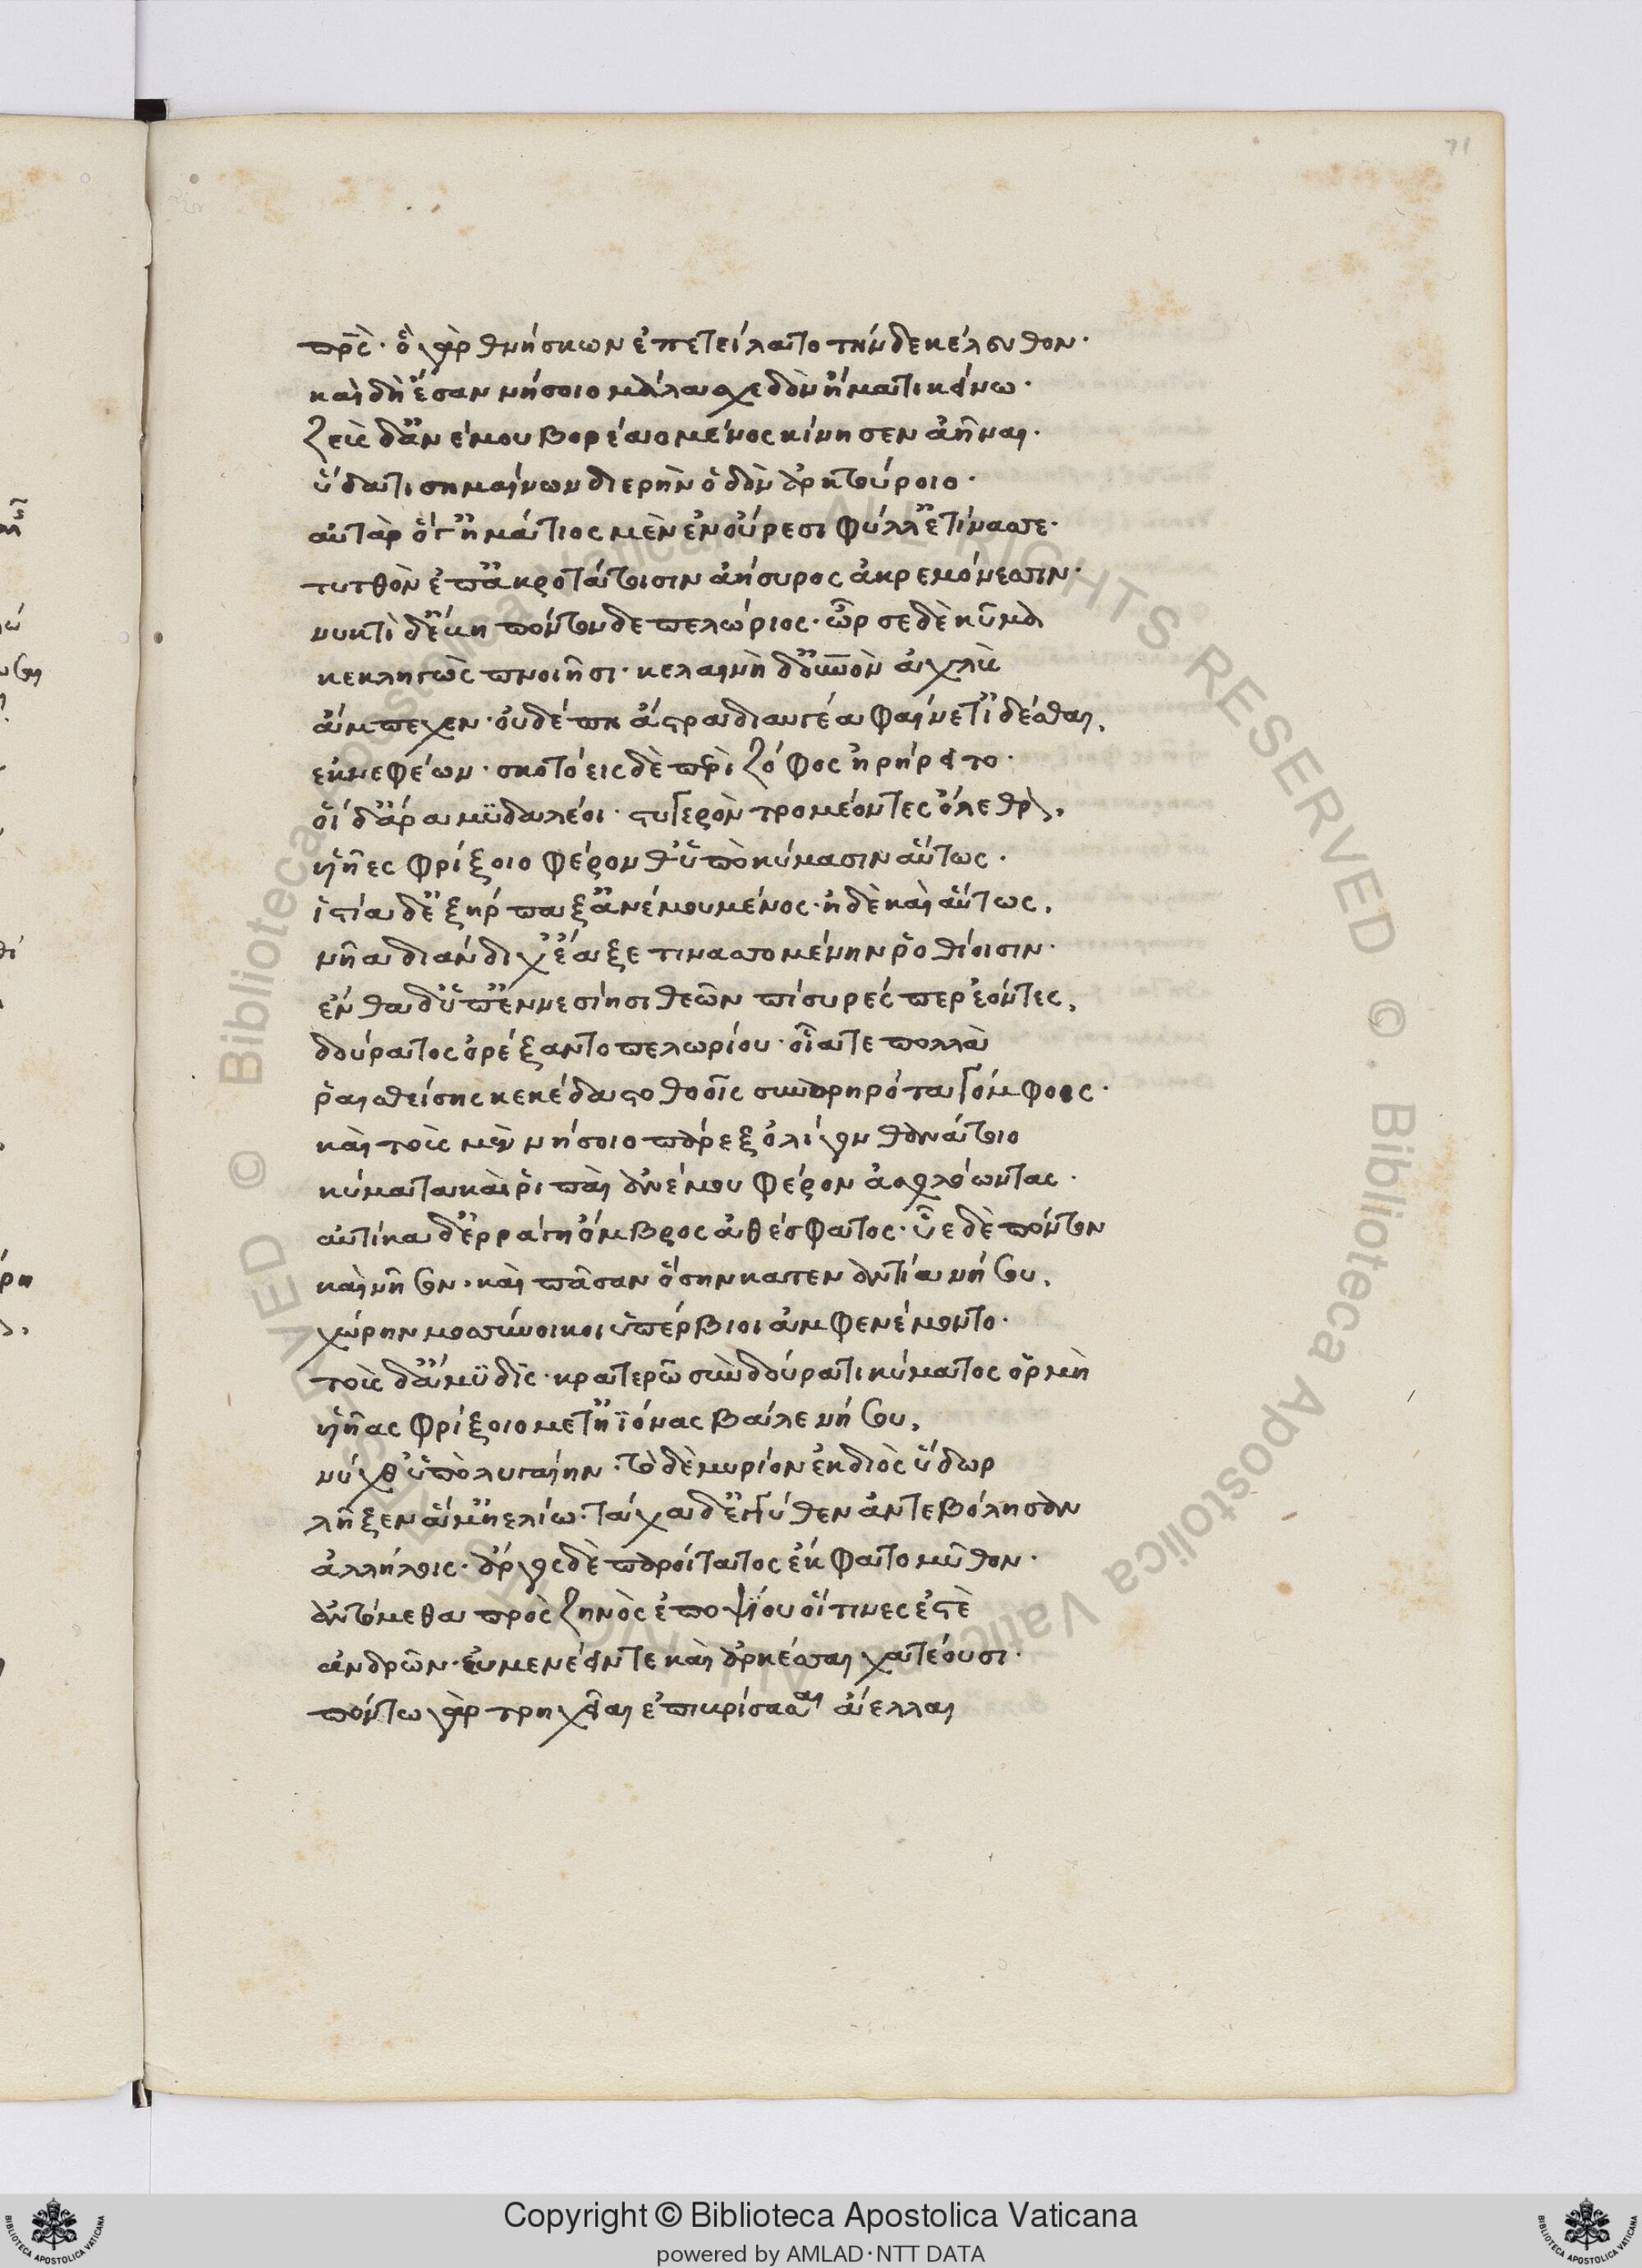 71
πρς· ὁ γὰρ θνήσκων ἐπετείλατο τήνδε κέλευθον·
καὶ δὴ ἔσαν νήσοιο μάλα σχεδὸν ἤματι κείνω·
ζεὺς δ' ἀνέμου βορέαο μένος κίνησεν ἀῆναι·
ὕδατι σημαίνων διερὴν ὁδὸν ἀρκτούροιο·
αὐτὰρ ὅγ' ἡμάτιος μὲν ἐν οὔρεσι φύλλ' ἐτίνασσε·
τυτθὸν ἐπ' ἀκροτάτοισιν ἀήσυρος ἀκρεμόνεσσιν·
νυκτὶ δ' ἔβη πόντονδε πελώριος· ὦρσε δὲ κῦμα
κεκληγὼς πνοιῆσι· κελαινὴ δ' οὐρανὸν ἀχλὺς
ἄμπεχεν· οὐδέ πη ἄστρα διαυγέα φαίνετ' ἰδέσθαι,
ἐκ νεφέων· σκοτόεις δὲ περὶ ζόφος ἠρήρειστο·
οἱ δ' ἄρα μυδαλέοι· στυγερὸν τρομέοντες ὄλεθρον,
υἱῆες φρίξοιο φέρονθ' ὑπὸ κύμασιν αὔτως·
ἱστία δ' ἐξήρπαξ' ἀνέμου μένος· ἠδὲ καὶ αὔτως,
νῆα διάνδιχ' ἔαξε τινασσομένην ῥοθίοισιν·
ἔνθα δ' ὑπ' ἐννεσίησι θεῶν πίσυρές περ ἐόντες,
δούρατος ὀρέξαντο πελωρίου· οἷά τε πολλὰ
ῥαισθείσης κεκέδαστο θοοῖς συναρηρότα γόμφοις·
καὶ τοὺς μὲν νήσοιο παρὲξ ὀλίγον θανάτοιο
κύματα καὶ ῥιπαὶ ἀνέμου φέρον ἀσχαλόωντας·
αὐτίκα δ' ἐρράγη ὄμβρος ἀθέσφατος· ὗε δὲ πόντον
καὶ νῆσον· καὶ πᾶσαν ὅσην κατεναντία νήσου,
χώρην μοσσύνοικοι ὑπέρβιοι ἀμφενέμοντο·
τοὺς δ' ἄμυδις· κρατερῶ σὺν δούρατι κύματος ὁρμὴ
υἱῆας φρίξοιο μετ' ἠϊόνας βάλε νήσου,
νύχθ' ὑπὸ λυγαίην· τὸ δὲ μυρίον ἐκ διὸς ὕδωρ
λῆξεν ἅμ' ἠελίω· τάχα δ' ἐγγύθεν ἀντεβόλησαν
ἀλλήλοις· ἄργος δὲ παροίτατος ἔκφατο μῦθον·
ἀντόμεθα πρὸς ζηνὸς ἐποψίου οἵτινες ἐστὲ
ἀνδρῶν· εὐμενέειν τε καὶ ἀρκέσσαι χατέουσι·
πόντω γὰρ τρηχεῖαι ἐπιβρίσασαι ἄελλαι
Copyright © Biblioteca Apostolica Vaticana
powered by AMLAD·NTT DATA